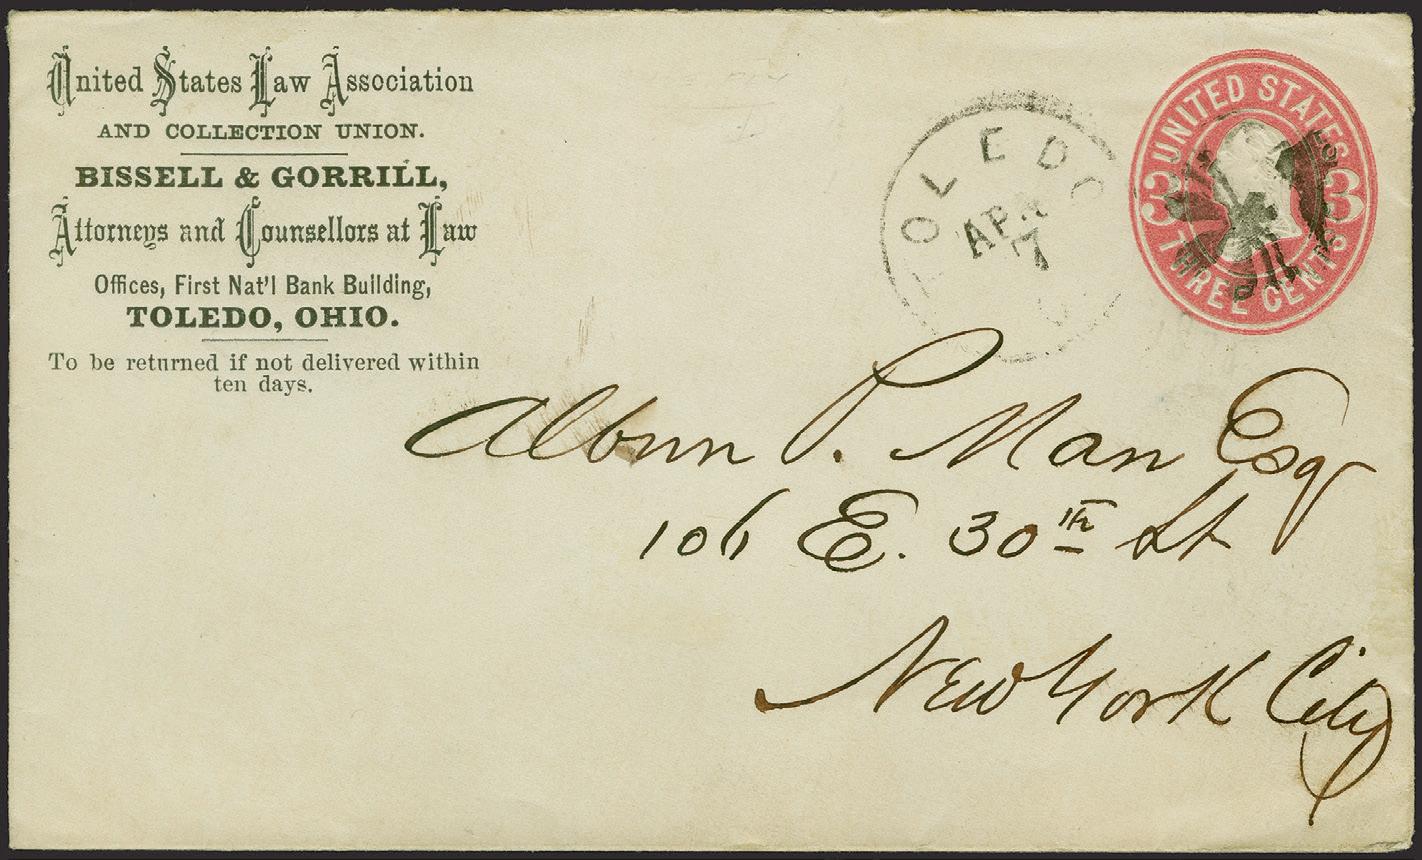 United States Law Association
AND COLLECTION UNION.
BISSELL & GORRILL,
Attorneys and Counsellors at Law
Offices, First Nat'l Bank Building,
TOLEDO, OHIO.
To be returned if not delivered within
ten days.
TOLEDO
APR
7
UNITED STATES
3 3
THREE CENTS
Albon P. Man Esq
106 E. 30th St
New York City